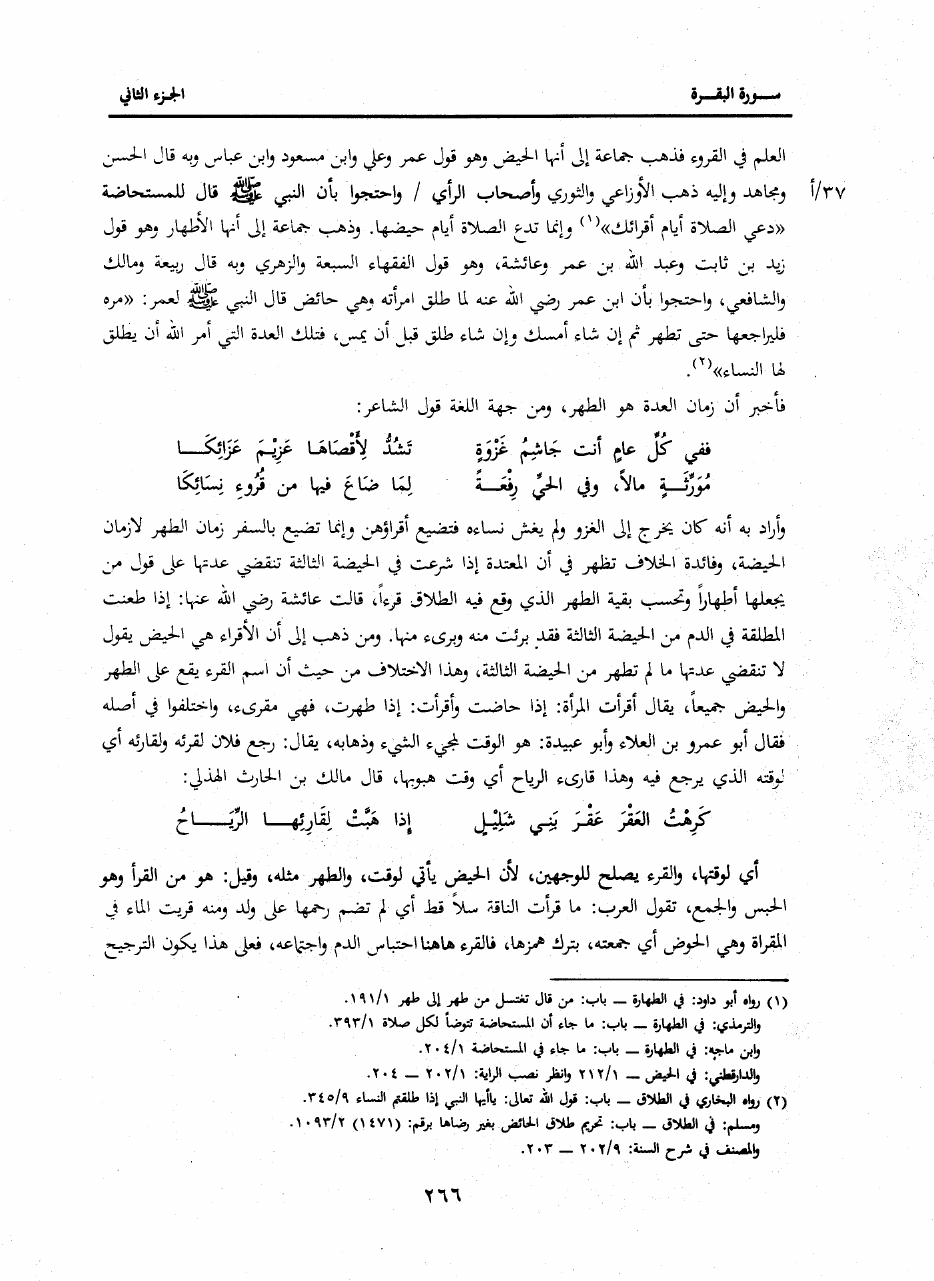 سورة البقرة الجزء الثاني
العلم في القروء فذهب جماعة إلى أنها الحيض وهو قول عمر وعلي وابن مسعود وابن عباس وبه قال الحسن
٣٧/أ ومجاهد وإليه ذهب الأوزاعي والثوري وأصحاب الرأي / واحتجوا بأن النبي ﷺ قال للمستحاضة
«دعي الصلاة أيام أقرائك»(١) وإنما تدع الصلاة أيام حيضها. وذهب جماعة إلى أنها الأطهار وهو قول
زيد بن ثابت وعبد الله بن عمر وعائشة، وهو قول الفقهاء السبعة والزهري وبه قال ربيعة ومالك
والشافعي، واحتجوا بأن ابن عمر رضي الله عنه لما طلق امرأته وهي حائض قال النبي ﷺ لعمر: «مره
فليراجعها حتى تطهر ثم إن شاء أمسك وإن شاء طلق قبل أن يمس، فتلك العدة التي أمر الله أن يطلق
لها النساء»(٢).
فأخبر أن زمان العدة هو الطهر، ومن جهة اللغة قول الشاعر:
ففي كُلِّ عامٍ أنت جَاشِمُ غَزْوَةٍ تَشُدُّ لِأَقْصَاهَا عَزِيْمَ عَزَائِكَا
مُوَرِّثَةٍ مالاً، وفي الحَيِّ رِفْعَةً لِمَا ضَاعَ فيها من قُرُوءِ نِسَائِكَا
وأراد به أنه كان يخرج إلى الغزو ولم يغش نساءه فتضيع أقراؤهن وإنما تضيع بالسفر زمان الطهر لازمان
الحيضة، وفائدة الخلاف تظهر في أن المعتدة إذا شرعت في الحيضة الثالثة تنقضي عدتها على قول من
يجعلها أطهاراً وتحسب بقية الطهر الذي وقع فيه الطلاق قرءاً، قالت عائشة رضي الله عنها: إذا طعنت
المطلقة في الدم من الحيضة الثالثة فقد برئت منه وبرىء منها. ومن ذهب إلى أن الأقراء هي الحيض يقول
لا تنقضي عدتها ما لم تطهر من الحيضة الثالثة، وهذا الاختلاف من حيث أن اسم القرء يقع على الطهر
والحيض جميعاً، يقال أقرأت المرأة: إذا حاضت وأقرأت: إذا طهرت، فهي مقرىء، واختلفوا في أصله
فقال أبو عمرو بن العلاء وأبو عبيدة: هو الوقت لمجيء الشيء وذهابه، يقال: رجع فلان لقرئه ولقارئه أي
لوقته الذي يرجع فيه وهذا قارىء الرياح أي وقت هبوبها، قال مالك بن الحارث الهذلي:
كَرِهْتُ العَقْرَ عَقْرَ بَنِي شَلِيْلٍ إذا هَبَّتْ لِقَارِئِهَا الرِّيَاحُ
أي لوقتها، والقرء يصلح للوجهين، لأن الحيض يأتي لوقت، والطهر مثله، وقيل: هو من القرأ وهو
الحبس والجمع، تقول العرب: ما قرأت الناقة سلاً قط أي لم تضم رحمها على ولد ومنه قريت الماء في
المقراة وهي الحوض أي جمعته، بترك همزها، فالقرء هاهنا احتباس الدم واجتماعه، فعلى هذا يكون الترجيح
(١) رواه أبو داود: في الطهارة — باب: من قال تغتسل من طهر إلى طهر ١٩١/١.
والترمذي: في الطهارة — باب: ما جاء أن المستحاضة تتوضأ لكل صلاة ٣٩٣/١.
وابن ماجه: في الطهارة — باب: ما جاء في المستحاضة ٢٠٤/١.
والدارقطني: في الحيض — ٢١٢/١ وانظر نصب الراية: ٢٠٢/١ — ٢٠٤.
(٢) رواه البخاري في الطلاق — باب: قول الله تعالى: ياأيها النبي إذا طلقتم النساء ٣٤٥/٩.
ومسلم: في الطلاق — باب: تحريم طلاق الحائض بغير رضاها برقم: (١٤٧١) ١٠٩٣/٢.
والمصنف في شرح السنة: ٢٠٢/٩ — ٢٠٣.
٢٦٦